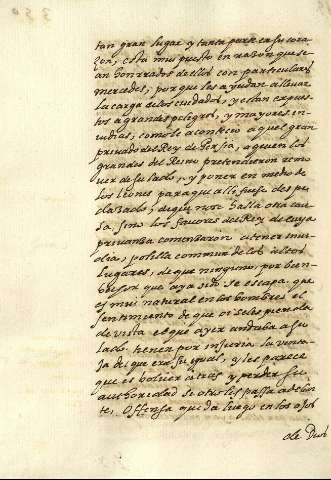 tan gran lugar y tanta parte en su cora-
zon, esta mui puesto en razon que se-
an honrrados de ellos con particulares
mercedes, porque les ayudan a llevar
la carga de los cuidados, y estan expues-
tos a grandes peligros, y mayores en-
vidias; como le acontecio a quel gran
privado del Rey de Persia, a quien los
grandes del Reino pretendieron remo
ver de su lado, y poner en medio de
los leones para que alli fuese des pe
dazado; de que no se halla otra cau-
sa, sino los favores del Rey de cuya
privanza comenzaron a tener
por ella comun de los altos
lugares, de que ninguno, por buen-
que aya sido se escapa. que
es mui natural en los hombres el
sentimiento de que se les pierda
de vista el que ayer andaba a su
lado tienen por injuria la venta-
ja del que era su igual, y les parece
que es bolver atras y perder su
authoridad se otro les passa adelan-
te. Offensa que da luego en los ojos
de